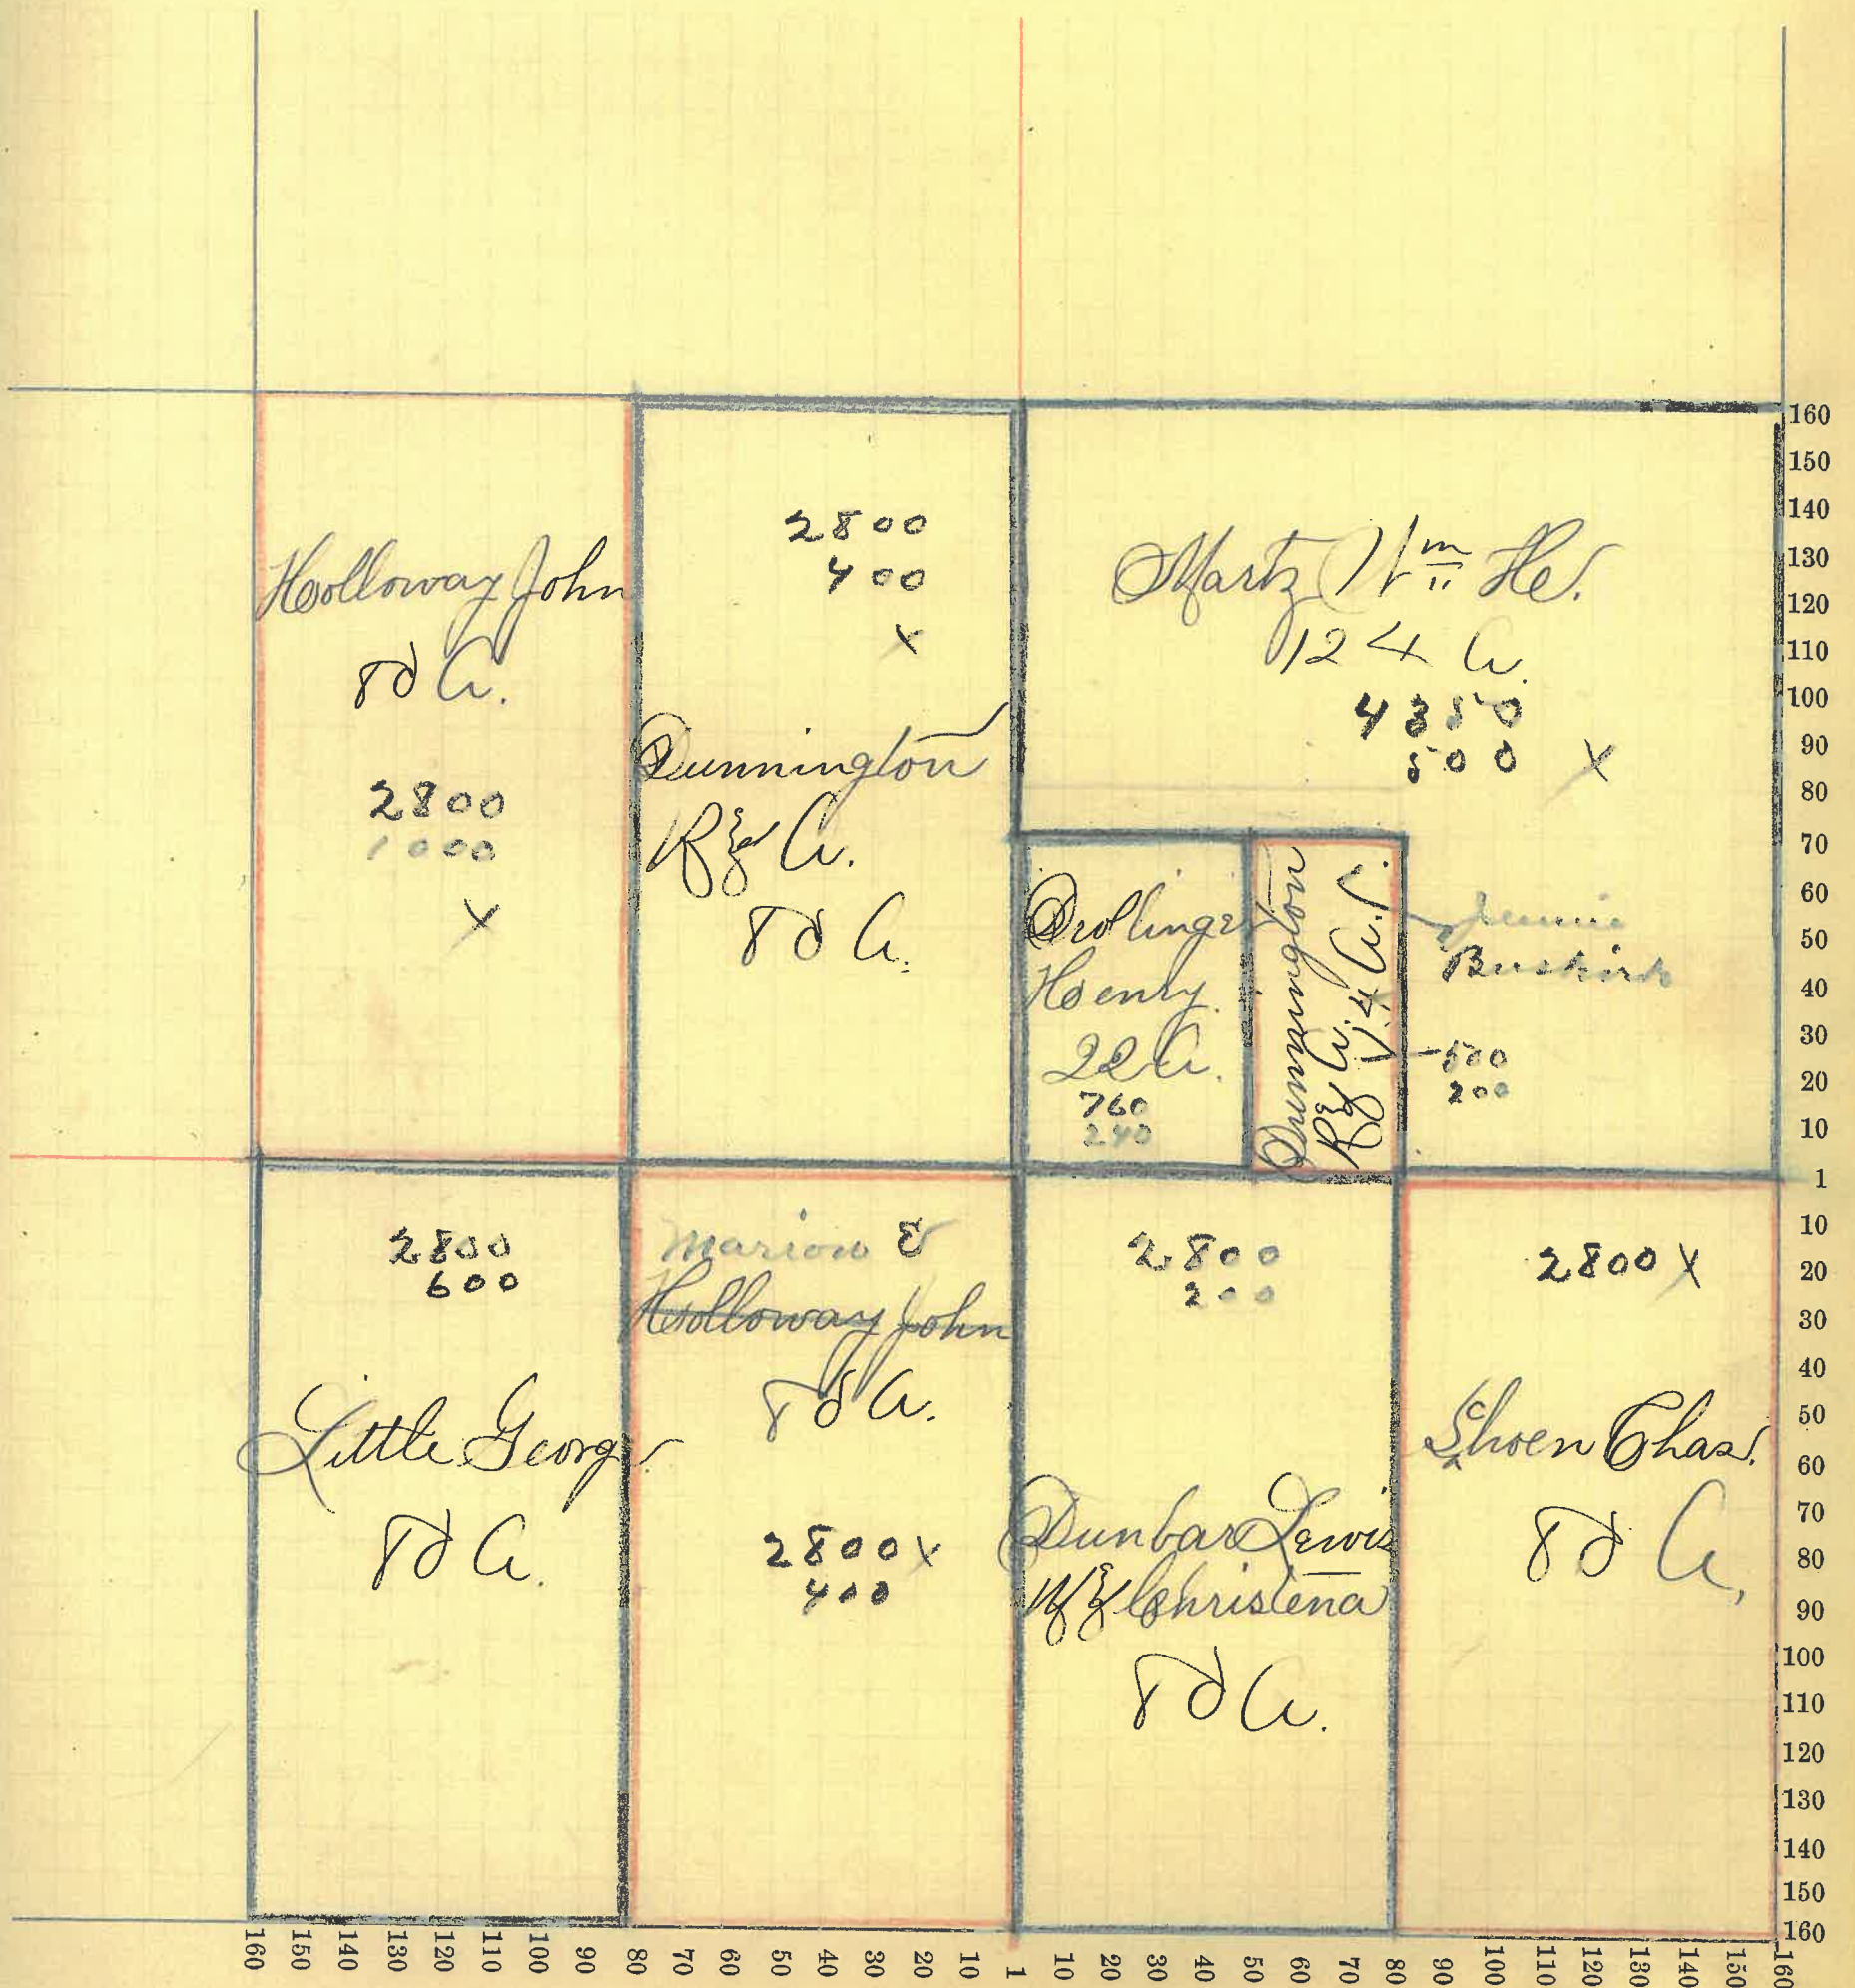 Holloway John
80 A.
2800
1000
X
2800
400
X
Dunnington
R & A.
80 A.
Martz Wm H.
124 A.
4350
500 X
Drollinger
Henry.
22 A.
760
240
Dunnington
R & A.
14 A.
Jennie
Buskirk
500
200
2800
600
Little George
80 A.
Marion &
Holloway John
80 A.
2800 X
400
2800
200
Dunbar Lewis
& Christena
80 A.
2800 X
Schoen Chas.
80 A.
160
150
140
130
120
110
100
90
80
70
60
50
40
30
20
10
1
10
20
30
40
50
60
70
80
90
100
110
120
130
140
150
160
160 150 140 130 120 110 100 90 80 70 60 50 40 30 20 10 1 10 20 30 40 50 60 70 80 90 100 110 120 130 140 150 160